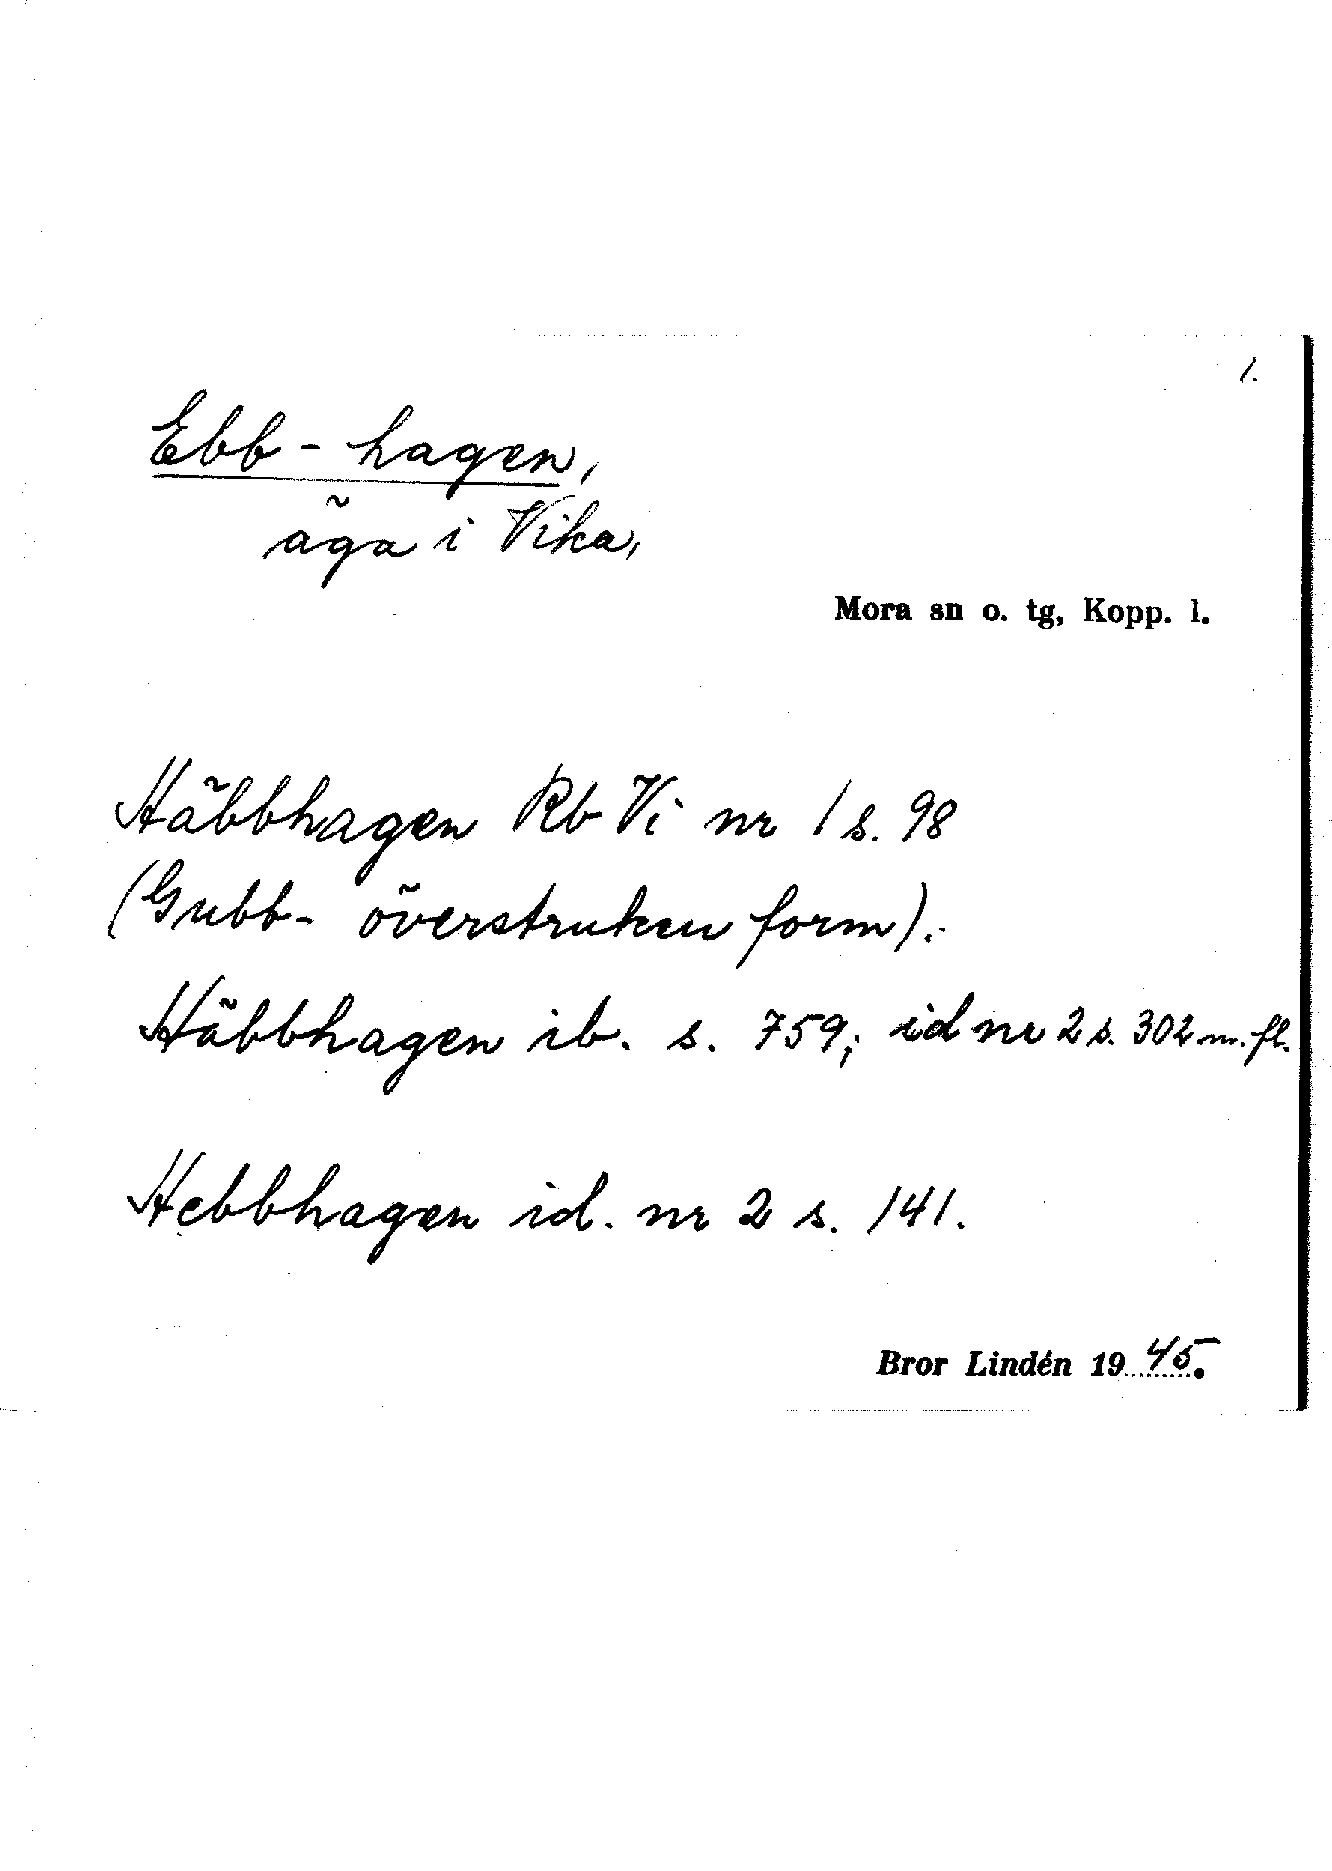 1.
Ebb-hagen,
äga i Vika,
Mora sn o. tg, Kopp. l.
Häbbhagen Rb Vi nr 1 s. 98
(Gubb- överstruken form).
Häbbhagen ib. s. 759; id nr 2 s. 302 m. fl.
Hebbhagen id. nr 2 s. 141.
Bror Lindén 1945.